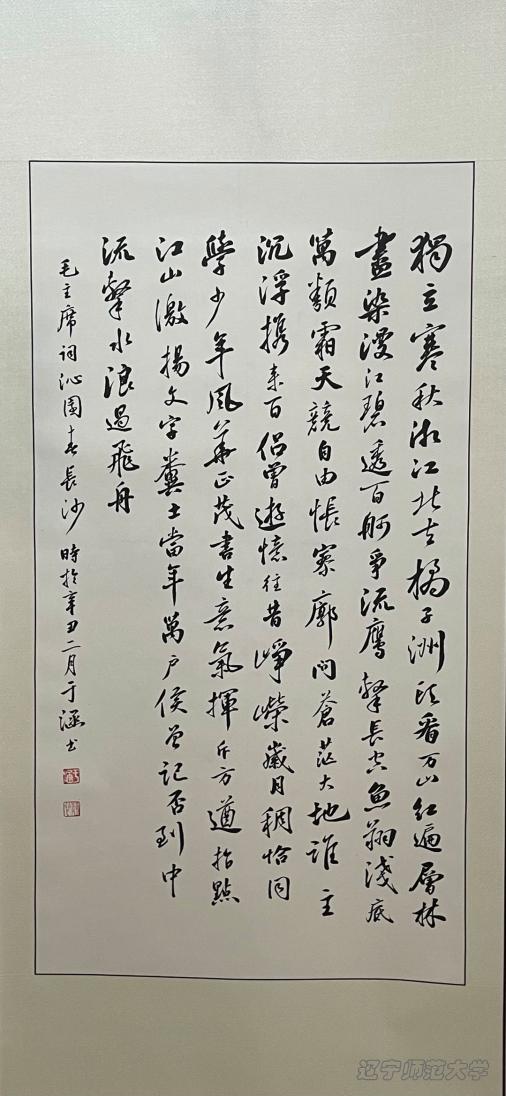 獨立寒秋湘江北去橘子洲頭看万山紅遍層林
盡染漫江碧透百舸爭流鷹擊長空魚翔淺底
萬類霜天競自由悵寥廓問蒼茫大地誰主
沉浮携來百侣曾遊憶往昔崢嶸歲月稠恰同
學少年風華正茂書生意氣揮斥方遒指點
江山激揚文字糞土當年萬户侯曾記否到中
流擊水浪遏飛舟
毛主席词沁園春長沙時於辛丑二月于涵书
辽宁师范大学